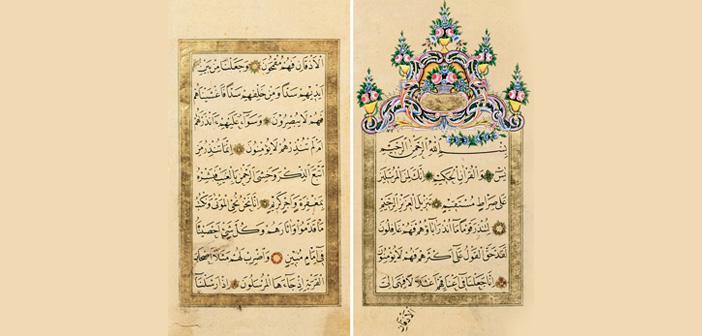 بسم الله الرحمن الرحيم
يس والقرآن الحكيم انك لمن المرسلين
على صراط مستقيم تنزيل العزيز الرحيم
لتنذر قوما ما انذر آباؤهم فهم غافلون
لقد حق القول على اكثرهم فهم لا يؤمنون
انا جعلنا في اعناقهم اغلالا فهي الى
الاذقان
الاذقان فهم مقمحون وجعلنا من بين
ايديهم سدا ومن خلفهم سدا فاغشيناهم
فهم لا يبصرون وسواء عليهم ءانذرتهم
ام لم تنذرهم لا يؤمنون انما تنذر من
اتبع الذكر وخشي الرحمن بالغيب فبشره
بمغفرة واجر كريم انا نحن نحي الموتى ونكتب
ما قدموا وآثارهم وكل شيء احصيناه
في امام مبين واضرب لهم مثلا اصحاب
القرية اذ جاءها المرسلون اذ ارسلنا